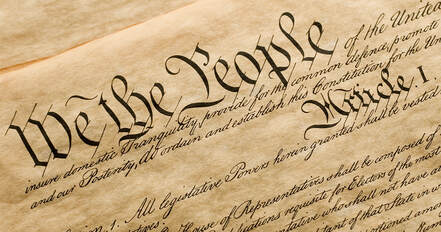 We the People of the United
insure domestic Tranquility, provide for the common defence, promote
and our Posterity, do ordain and establish this Constitution for the Un
Article. I.
1. All legislative Powers herein granted shall be vested
House of Representatives shall be composed of
requisite for Electors of the most
who shall not have a
of that State in